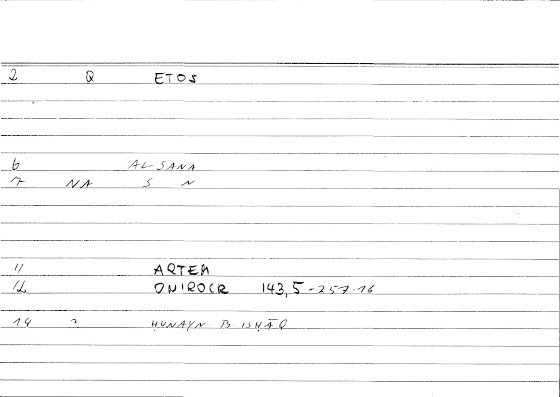 2 Q ETOS
6 AL-SANA
7 NA S N
11 ARTEM
12 ONIROCR 143,5-257.16
14 ? ḤUNAYN B ISḤĀQ